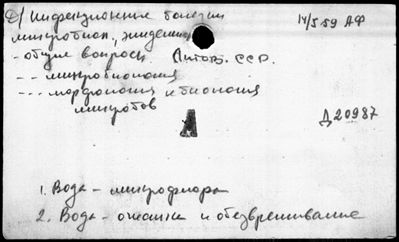 с/ Инфекционные болезни 14/5 59 АФ
микробиол., эпидемиол
- общие вопросы. Литов. ССР.
-- микробиология
--- морфология и биология
микробов
А
Д20987
1. Вода - микрофлора
2. Вода - очистка и обезвреживание